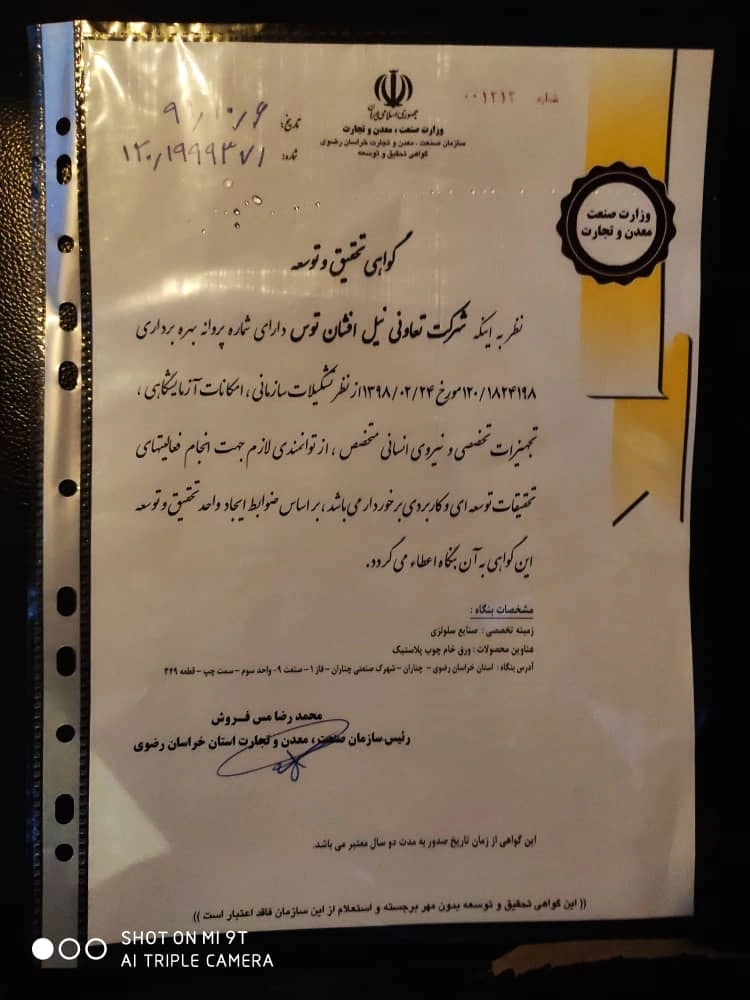 جمهوری اسلامی ایران
وزارت صنعت، معدن و تجارت
سازمان صنعت، معدن و تجارت خراسان رضوی
گواهی تحقیق و توسعه
شماره ۰۰۱۲۱۲
تاریخ:
شماره: ۱۲۰/۱۹۹۹۳۷۱
وزارت صنعت
معدن و تجارت
گواهی تحقیق و توسعه
نظر به اینکه شرکت تعاونی نیل افشان توس دارای شماره پروانه بهره برداری
۱۲۰/۱۸۲۴۱۹۸مورخ ۱۳۹۸/۰۲/۲۴از نظر تشکیلات سازمانی ، امکانات آزمایشگاهی ،
تجهیزات تخصصی و نیروی انسانی متخصص ، از توانمندی لازم جهت انجام فعالیتهای
تحقیقات توسعه ای و کاربردی برخوردار می باشد ، بر اساس ضوابط ایجاد واحد تحقیق و توسعه
این گواهی به آن بنگاه اعطاء می گردد.
مشخصات بنگاه :
زمینه تخصصی : صنایع سلولزی
عناوین محصولات : ورق خام چوب پلاستیک
آدرس بنگاه : استان خراسان رضوی – چناران – شهرک صنعتی چناران – فاز ۱ – صنعت ۹- واحد سوم – سمت چپ – قطعه ۴۴۹
محمد رضا مس فروش
رئیس سازمان صنعت، معدن و تجارت استان خراسان رضوی
این گواهی از زمان تاریخ صدور به مدت دو سال معتبر می باشد.
(( این گواهی تحقیق و توسعه بدون مهر برجسته و استعلام از این سازمان فاقد اعتبار است ))
SHOT ON MI 9T
AI TRIPLE CAMERA